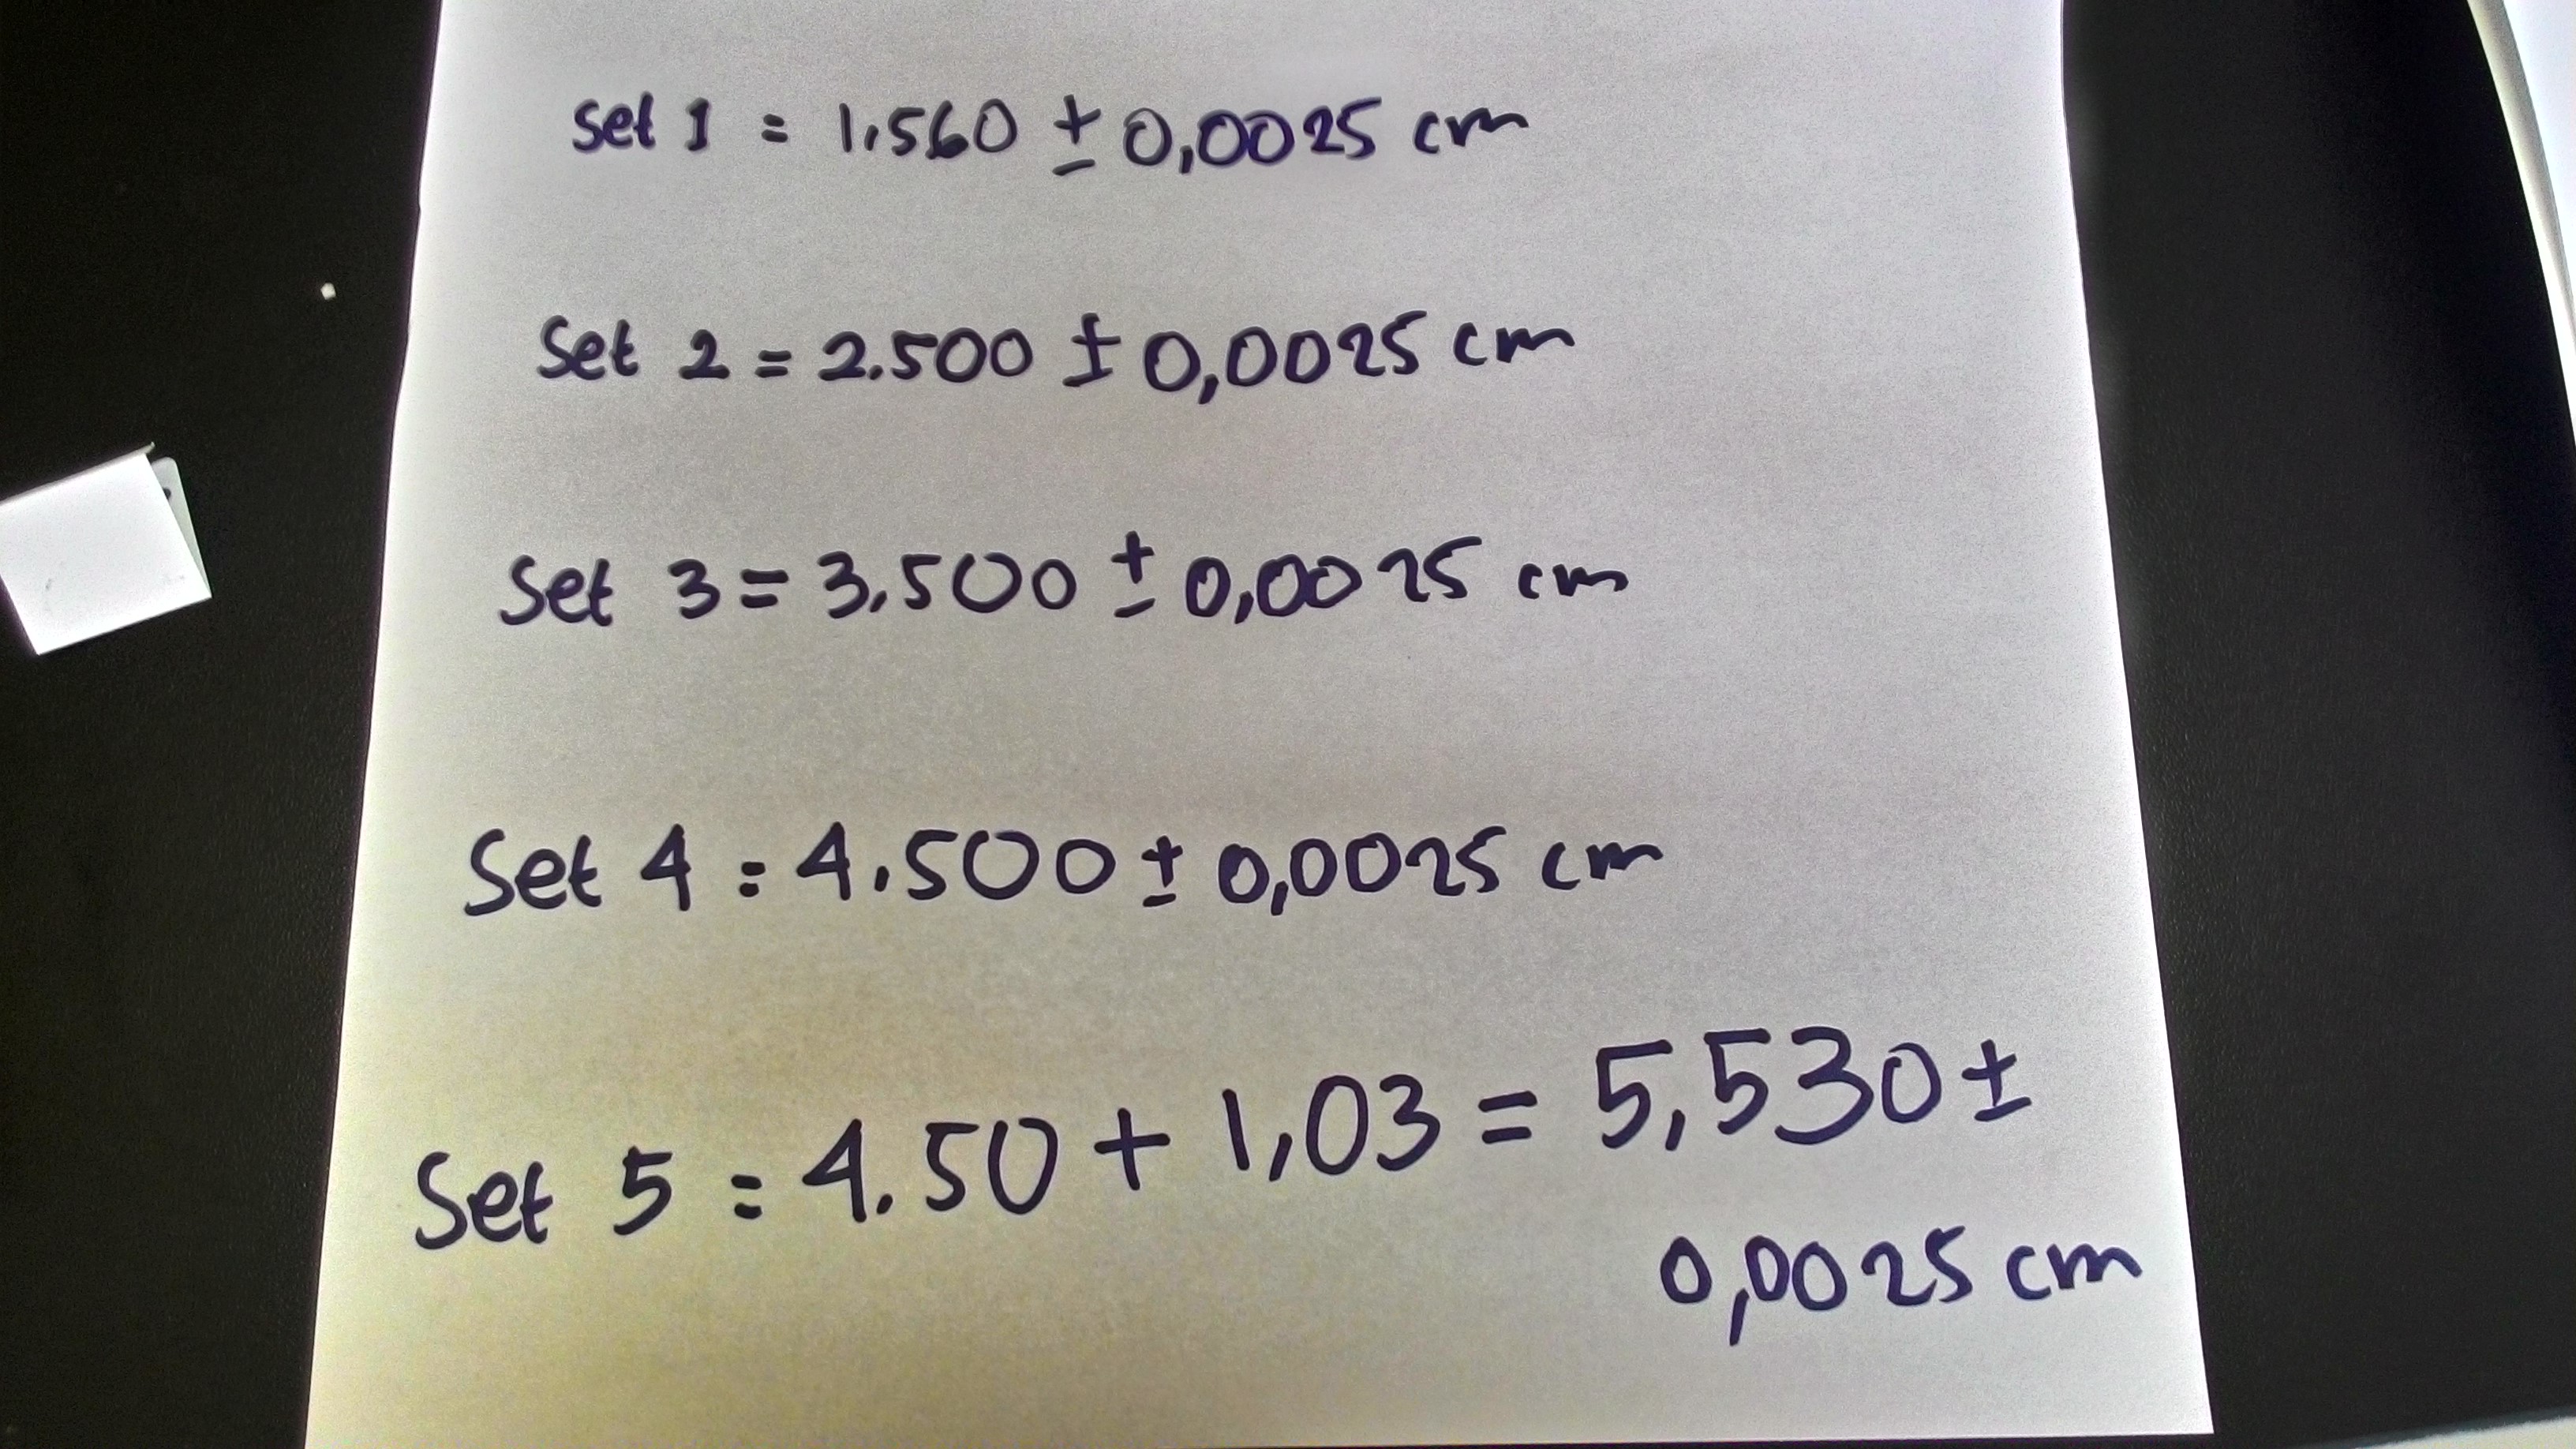 set 1 = 1.560 ± 0,0025 cm
Set 2 = 2.500 ± 0,0025 cm
Set 3 = 3.500 ± 0,0025 cm
Set 4 = 4.500 ± 0,0025 cm
Set 5 = 4.50 + 1,03 = 5,530 ±
0,0025 cm